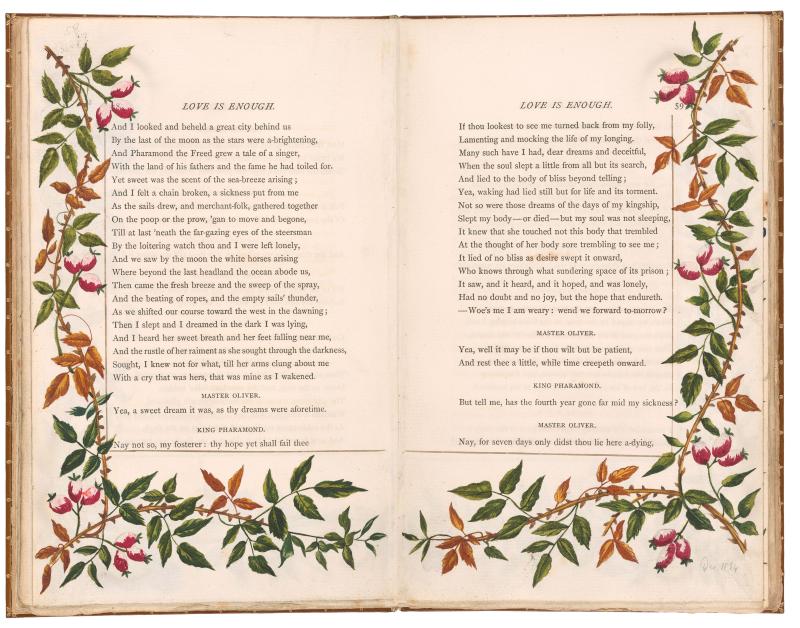 58
LOVE IS ENOUGH.
And I looked and beheld a great city behind us
By the last of the moon as the stars were a-brightening,
And Pharamond the Freed grew a tale of a singer,
With the land of his fathers and the fame he had toiled for.
Yet sweet was the scent of the sea-breeze arising;
And I felt a chain broken, a sickness put from me
As the sails drew, and merchant-folk, gathered together
On the poop or the prow, 'gan to move and begone,
Till at last 'neath the far-gazing eyes of the steersman
By the loitering watch thou and I were left lonely,
And we saw by the moon the white horses arising
Where beyond the last headland the ocean abode us,
Then came the fresh breeze and the sweep of the spray,
And the beating of ropes, and the empty sails' thunder,
As we shifted our course toward the west in the dawning;
Then I slept and I dreamed in the dark I was lying,
And I heard her sweet breath and her feet falling near me,
And the rustle of her raiment as she sought through the darkness,
Sought, I knew not for what, till her arms clung about me
With a cry that was hers, that was mine as I wakened.
MASTER OLIVER.
Yea, a sweet dream it was, as thy dreams were aforetime.
KING PHARAMOND.
Nay not so, my fosterer: thy hope yet shall fail thee
LOVE IS ENOUGH.
59
If thou lookest to see me turned back from my folly,
Lamenting and mocking the life of my longing.
Many such have I had, dear dreams and deceitful,
When the soul slept a little from all but its search,
And lied to the body of bliss beyond telling;
Yea, waking had lied still but for life and its torment.
Not so were those dreams of the days of my kingship,
Slept my body—or died—but my soul was not sleeping,
It knew that she touched not this body that trembled
At the thought of her body sore trembling to see me;
It lied of no bliss as desire swept it onward,
Who knows through what sundering space of its prison;
It saw, and it heard, and it hoped, and was lonely,
Had no doubt and no joy, but the hope that endureth.
—Woe's me I am weary: wend we forward to-morrow?
MASTER OLIVER.
Yea, well it may be if thou wilt but be patient,
And rest thee a little, while time creepeth onward.
KING PHARAMOND.
But tell me, has the fourth year gone far mid my sickness?
MASTER OLIVER.
Nay, for seven days only didst thou lie here a-dying,